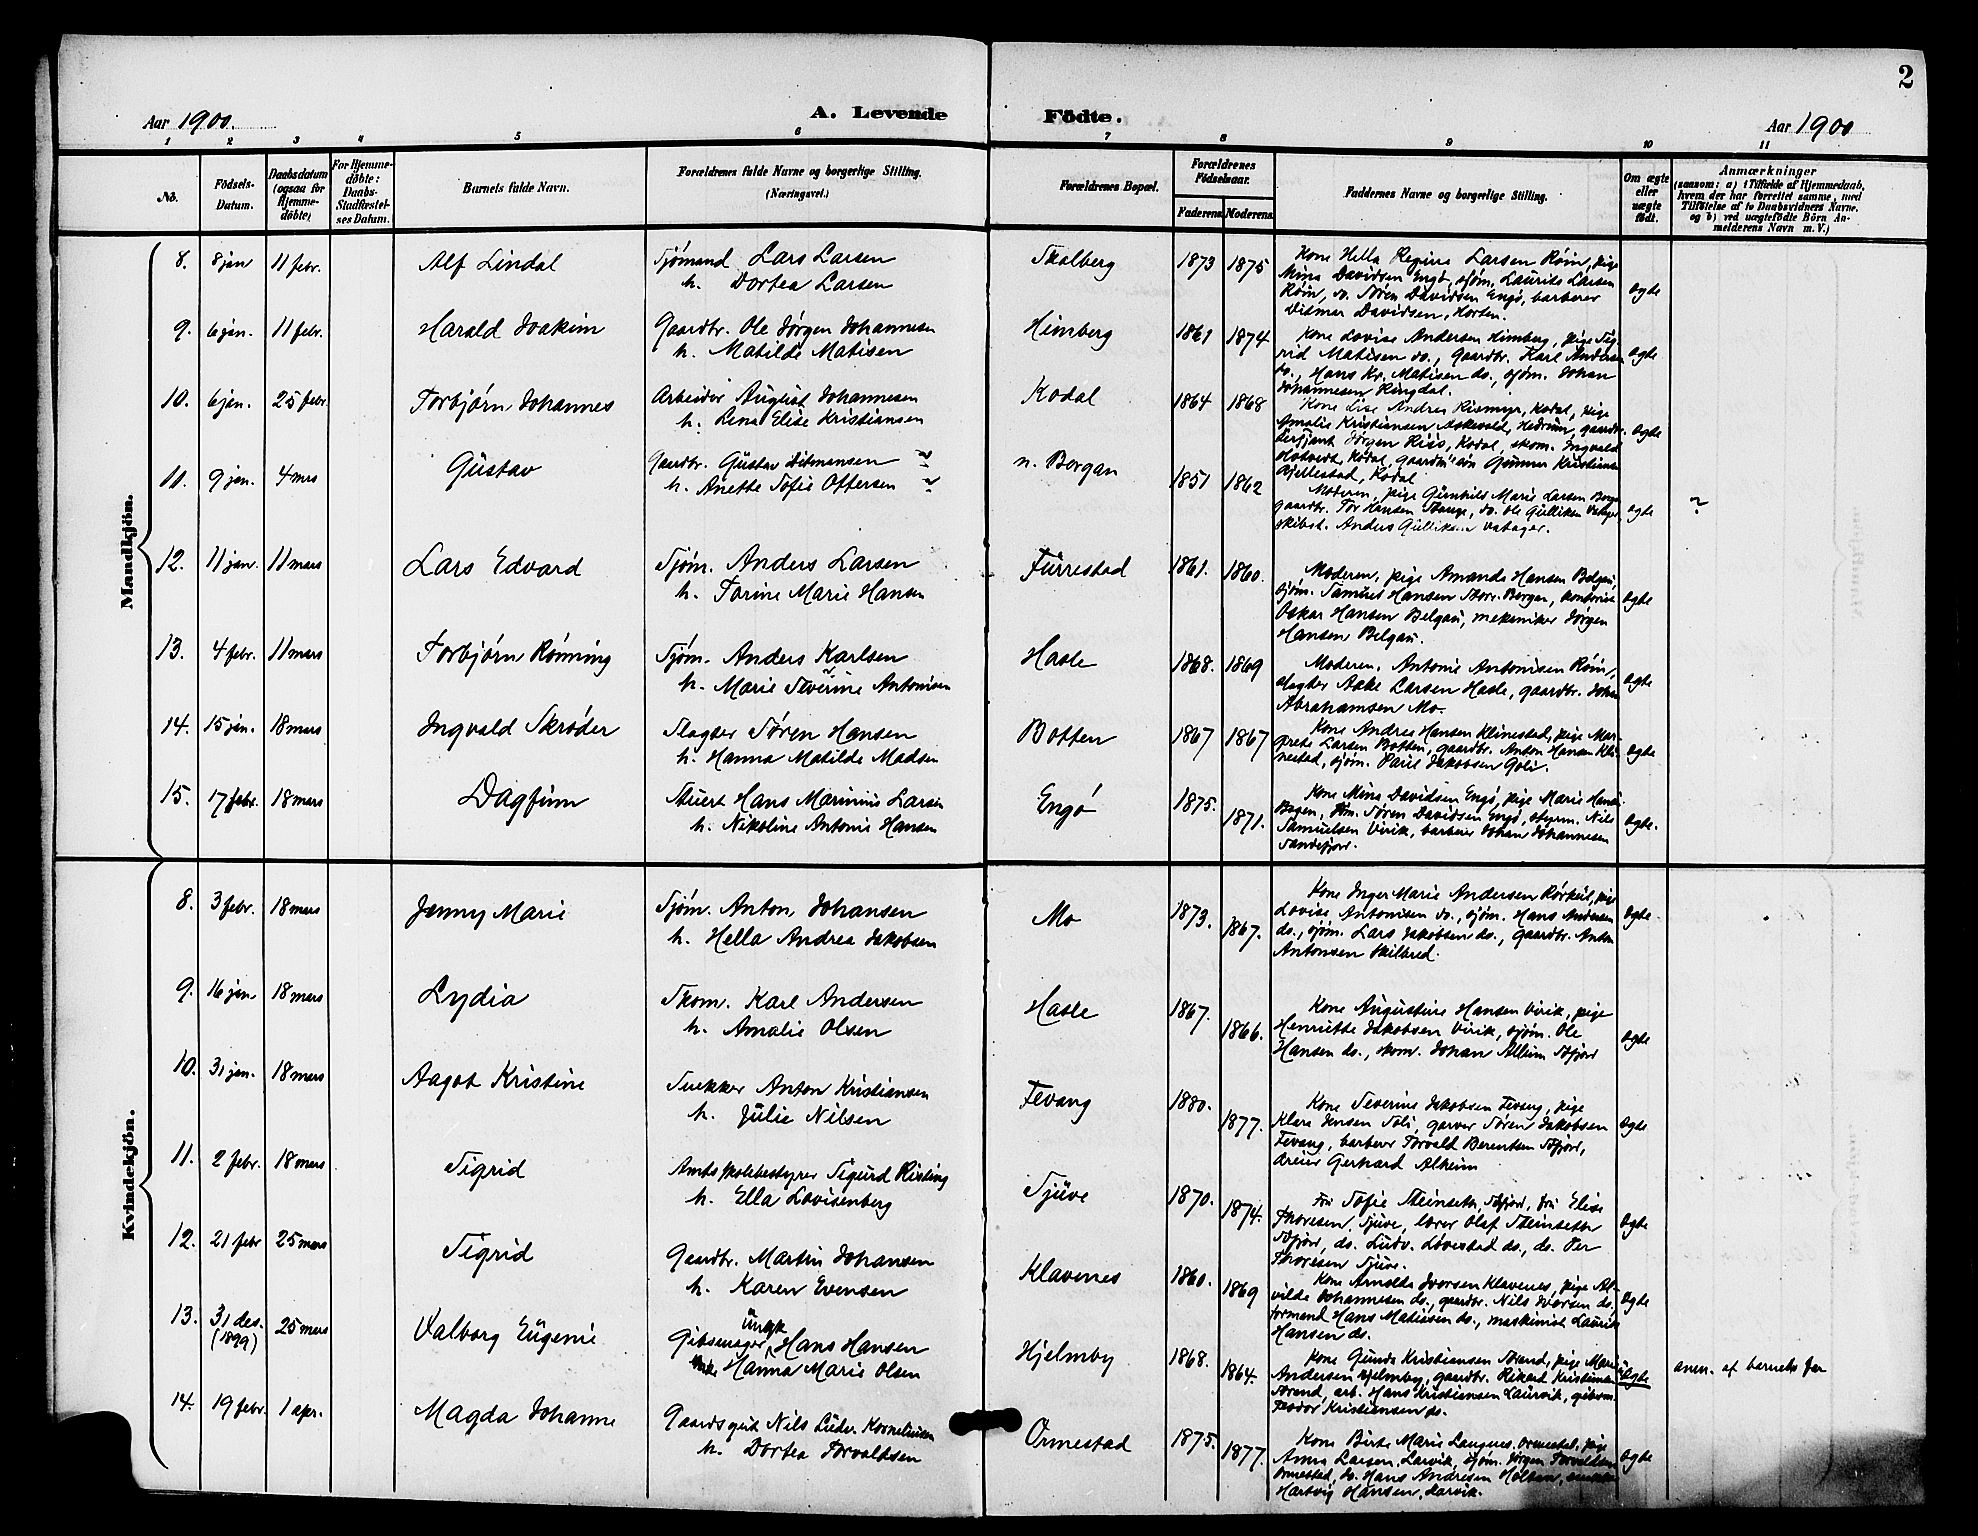 2
Aar 1900.
A. Levende Födte.
Aar 1900
1 2 3 4 5 6 7 8 9 10 11
No.
Födsels-Datum.
Daabsdatum (ogsaa for Hjemmedöbte)
For Hjemmedöbte: Daabs-Stadfæstelses Datum.
Barnets fulde Navn.
Forældrenes fulde Navne og borgerlige Stilling. (Næringsvei.)
Forældrenes Bopæl.
Forældrenes Födselsaar.
Faderens Moderens
Faddernes Navne og borgerlige Stilling.
Om ægte eller uægte födt.
Anmærkninger
(saasom: a) i Tilfælde af Hjemmedaab,
hvem der har forrettet samme, med
Tilföielse af to Daabsvidners Navne,
og b) ved uægtefödte Börn An-
melderens Navn m. V.)
Mandkjön.
8. 8 jan 11 febr. Alf Lindal
Sjømand Lars Larsen
h. Dortea Larsen
Skolberg 1873 1875
Kone Hella Regine Larsen Røin, pige
Mina Davidsen Engø, sjøm. Laurits Larsen
Røin, do. Søren Davidsen Engø, barberer
Ditmar Davidsen, Horten.
ægte
9. 6 jan. 11 febr. Harald Joakim
Gaardbr. Ole Jørgen Johannesen
h. Matilde Matisen
Himberg 1861 1874
Kone Lovise Andersen Himberg, pige Sig-
rid Matisen do., gaardbr. Karl Andersen
do., Hans Kr. Matisen ds., sjøm. Johan
Johannesen Ringdal.
ægte
10. 6 jan. 25 febr. Torbjørn Johannes
Arbeider August Johannesen
h. Lina Elise Kristiansen
Kodal 1864 1868
Kone Lise Andrea Kodal, pige
Amalie Kristiansen Askevold, Hedrum, gaardbr.
Jørgen Kodal, skom. Ingvald
Kodal, gaardm. søn Gunnar Kristiansen
Gjellestad, Kodal
ægte
11. 9 jan. 4 mrs Gustav
Gaardbr. Gustav Ditmansen
h. Anette Sofie Ottersen
n. Borgan 1851 1862
Moderen, pige Gunhild Marie Larsen
gaardbr. Tor Hansen Stange, do. Ole Gulliksen
skibst. Anders Gulliksen
ægte
12. 11 jan. 11 mars Lars Edvard
Sjøm. Anders Larsen
h. Torine Marie Hansen
Furrestad 1861. 1860.
Moderen, pige Amanda Hansen Belgau,
sjøm. Samuel Hansen Bergan, kontorist
Oskar Hansen Belgau, mekaniker Jørgen
Hansen Belgau.
ægte
13. 4 febr. 11 mars Torbjørn Rønning
Sjøm. Anders Karlsen
h. Marie Severine Antonisen
Hasle 1868. 1869
Moderen, Antonie Antonisen Røin,
slagter Aake Larsen Hasle, gaardbr. Johan
Abrahamsen Mo.
ægte
14. 15 jan. 18 mars Ingvald Skrøder
Slagter Søren Hansen
h. Hanna Matilde Madsen
Botten 1867 1867
Kone Andrea Hansen Klinestad, pige Mar-
grete Larsen Botten, gaardbr. Anton Hansen Kli-
nestad, sjøm. Paul Jakobsen Goli.
ægte
15. 17 febr. 18 mars Dagfinn
Stuert Hans Marinius Larsen
h. Nikoline Antonie Hansen
Engø 1875. 1871.
Kone Mina Davidsen Engø, pige Marie Hansen
Bogen, Søren Davidsen Engø, styrm. Nils
Samuelsen Virik, barberer Johan Johannesen
Sandefjord.
ægte.
Kvindekjön.
8. 3 febr. 18 mars Jenny Marie
Sjøm. Anton Johansen
h. Hella Andrea Jakobsen
Mo 1873. 1867.
Kone Inger Marie Andersen Rørkul, pige
Lovise Antonisen do., sjøm. Hans Andersen
ds., sjøm. Lars Jakobsen ds., gaardbr. Anton
Antonsen Skilbred.
ægte
9. 16 jan 18 mars Lydia
Skom. Karl Andersen
h. Amalie Olsen
Hasle 1867. 1866.
Kone Augustine Hansen Virik, pige
Henriette Jakobsen Virik, sjøm. Ole
Hansen ds., skom. Johan Allum Sfjord
ægte
10. 31 jan. 18 mars Aagot Kristine
Snekker Anton Kristiansen
h. Julie Nilsen
Fevang 1880. 1877.
Kone Severine Jakobsen Fevang, pige
Klara Jensen Soli, garver Søren Jakobsen
Fevang, barberer Torvald Berentsen Sfjord,
dreier Gerhard Alheim
ægte
11. 2 febr. 18 mars Sigrid
Amtsskolebestyrer Sigurd Risting
h. Ella Lovisenberg
Tjuve 1870. 1874.
Fru Sofie Steinseth, Sfjord, fru Elise
Thoresen, Tjuve, lærer Olaf Steinseth
Sfjord, ds. Ludv. Løvestad ds., ds. Per
Thoresen Tjuve.
ægte
12. 21 febr 25 mars Sigrid
Gaardbr. Martin Johansen
h. Karen Evensen
Klavenes 1860. 1869
Kone Arnolda Iversen Klavenes, pige Al-
vilde Johannesen ds., gaardbr. Nils Iversen ds.
formand Hans Matisen ds., maskinist Laurits
Hansen ds.
ægte
13. 31 des. (1899) 25 mars Valborg Eugenie
Gibsmager, Ungk Hans Hansen
Hanna Marie Olsen
Hjelmby 1868. 1864.
Kone Gunda Kristiansen Strand, pige Marie
Andersen Hjelmby, gaardbr. Rikard Kristiansen
Strand, arb. Hans Kristiansen Laurvik, gibsm.
Teodor Kristiansen ds.
uægte
anm. af barnets far
14. 19 febr. 1 apr. Magda Johanne
Gaardsgut Nils Lüder Kornelinsen
h. Dortea Torvaldsen
Ormestad 1875. 1877.
Kone Birte Marie Langnes, Ormestad, pige
Anna Larsen, Larvik, sjøm. Jørgen Torvaldsen
Ormestad, do. Hans Andresen Holtan,
Hartvig Hansen, Larvik.
ægte